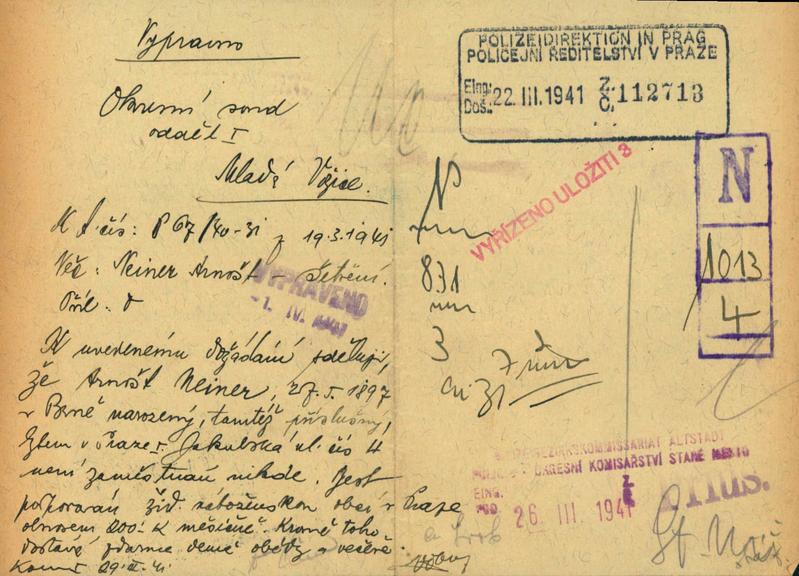 Vypraveno
Okresní soud
odděl. I
Mladá Vožice.
K č.čís: P 67/40-31 z 19.3.1941
Věc: Neiner Arnošt – šetření.
Příl.
K uvedenému dožádání sděluji,
že Arnošt Neiner, 27.5.1897
v Brně narozený, tamtéž příslušný,
bytem v Praze I. Jakubská ul. čís 4
není zaměstnán nikde. Jest
podporován žid. náboženskou obcí v Praze
obnosem 200.- K měsíčně. Kromě toho
dostává zdarma denně obědy a večeře.
VYPRAVENO
-1. IV. 1941
POLIZEIDIREKTION IN PRAG
POLICEJNÍ ŘEDITELSTVÍ V PRAZE
Eing:
Doš.: 22. III. 1941 Z. Č. 112713
VYŘÍZENO ULOŽITI 3
N
1013
4
N
831
3
31
BEZIRKSKOMMISSARIAT ALTSTADT
OKRESNÍ KOMISAŘSTVÍ STARÉ MĚSTO
EING.
POD. 26. III. 1941
Z
Č